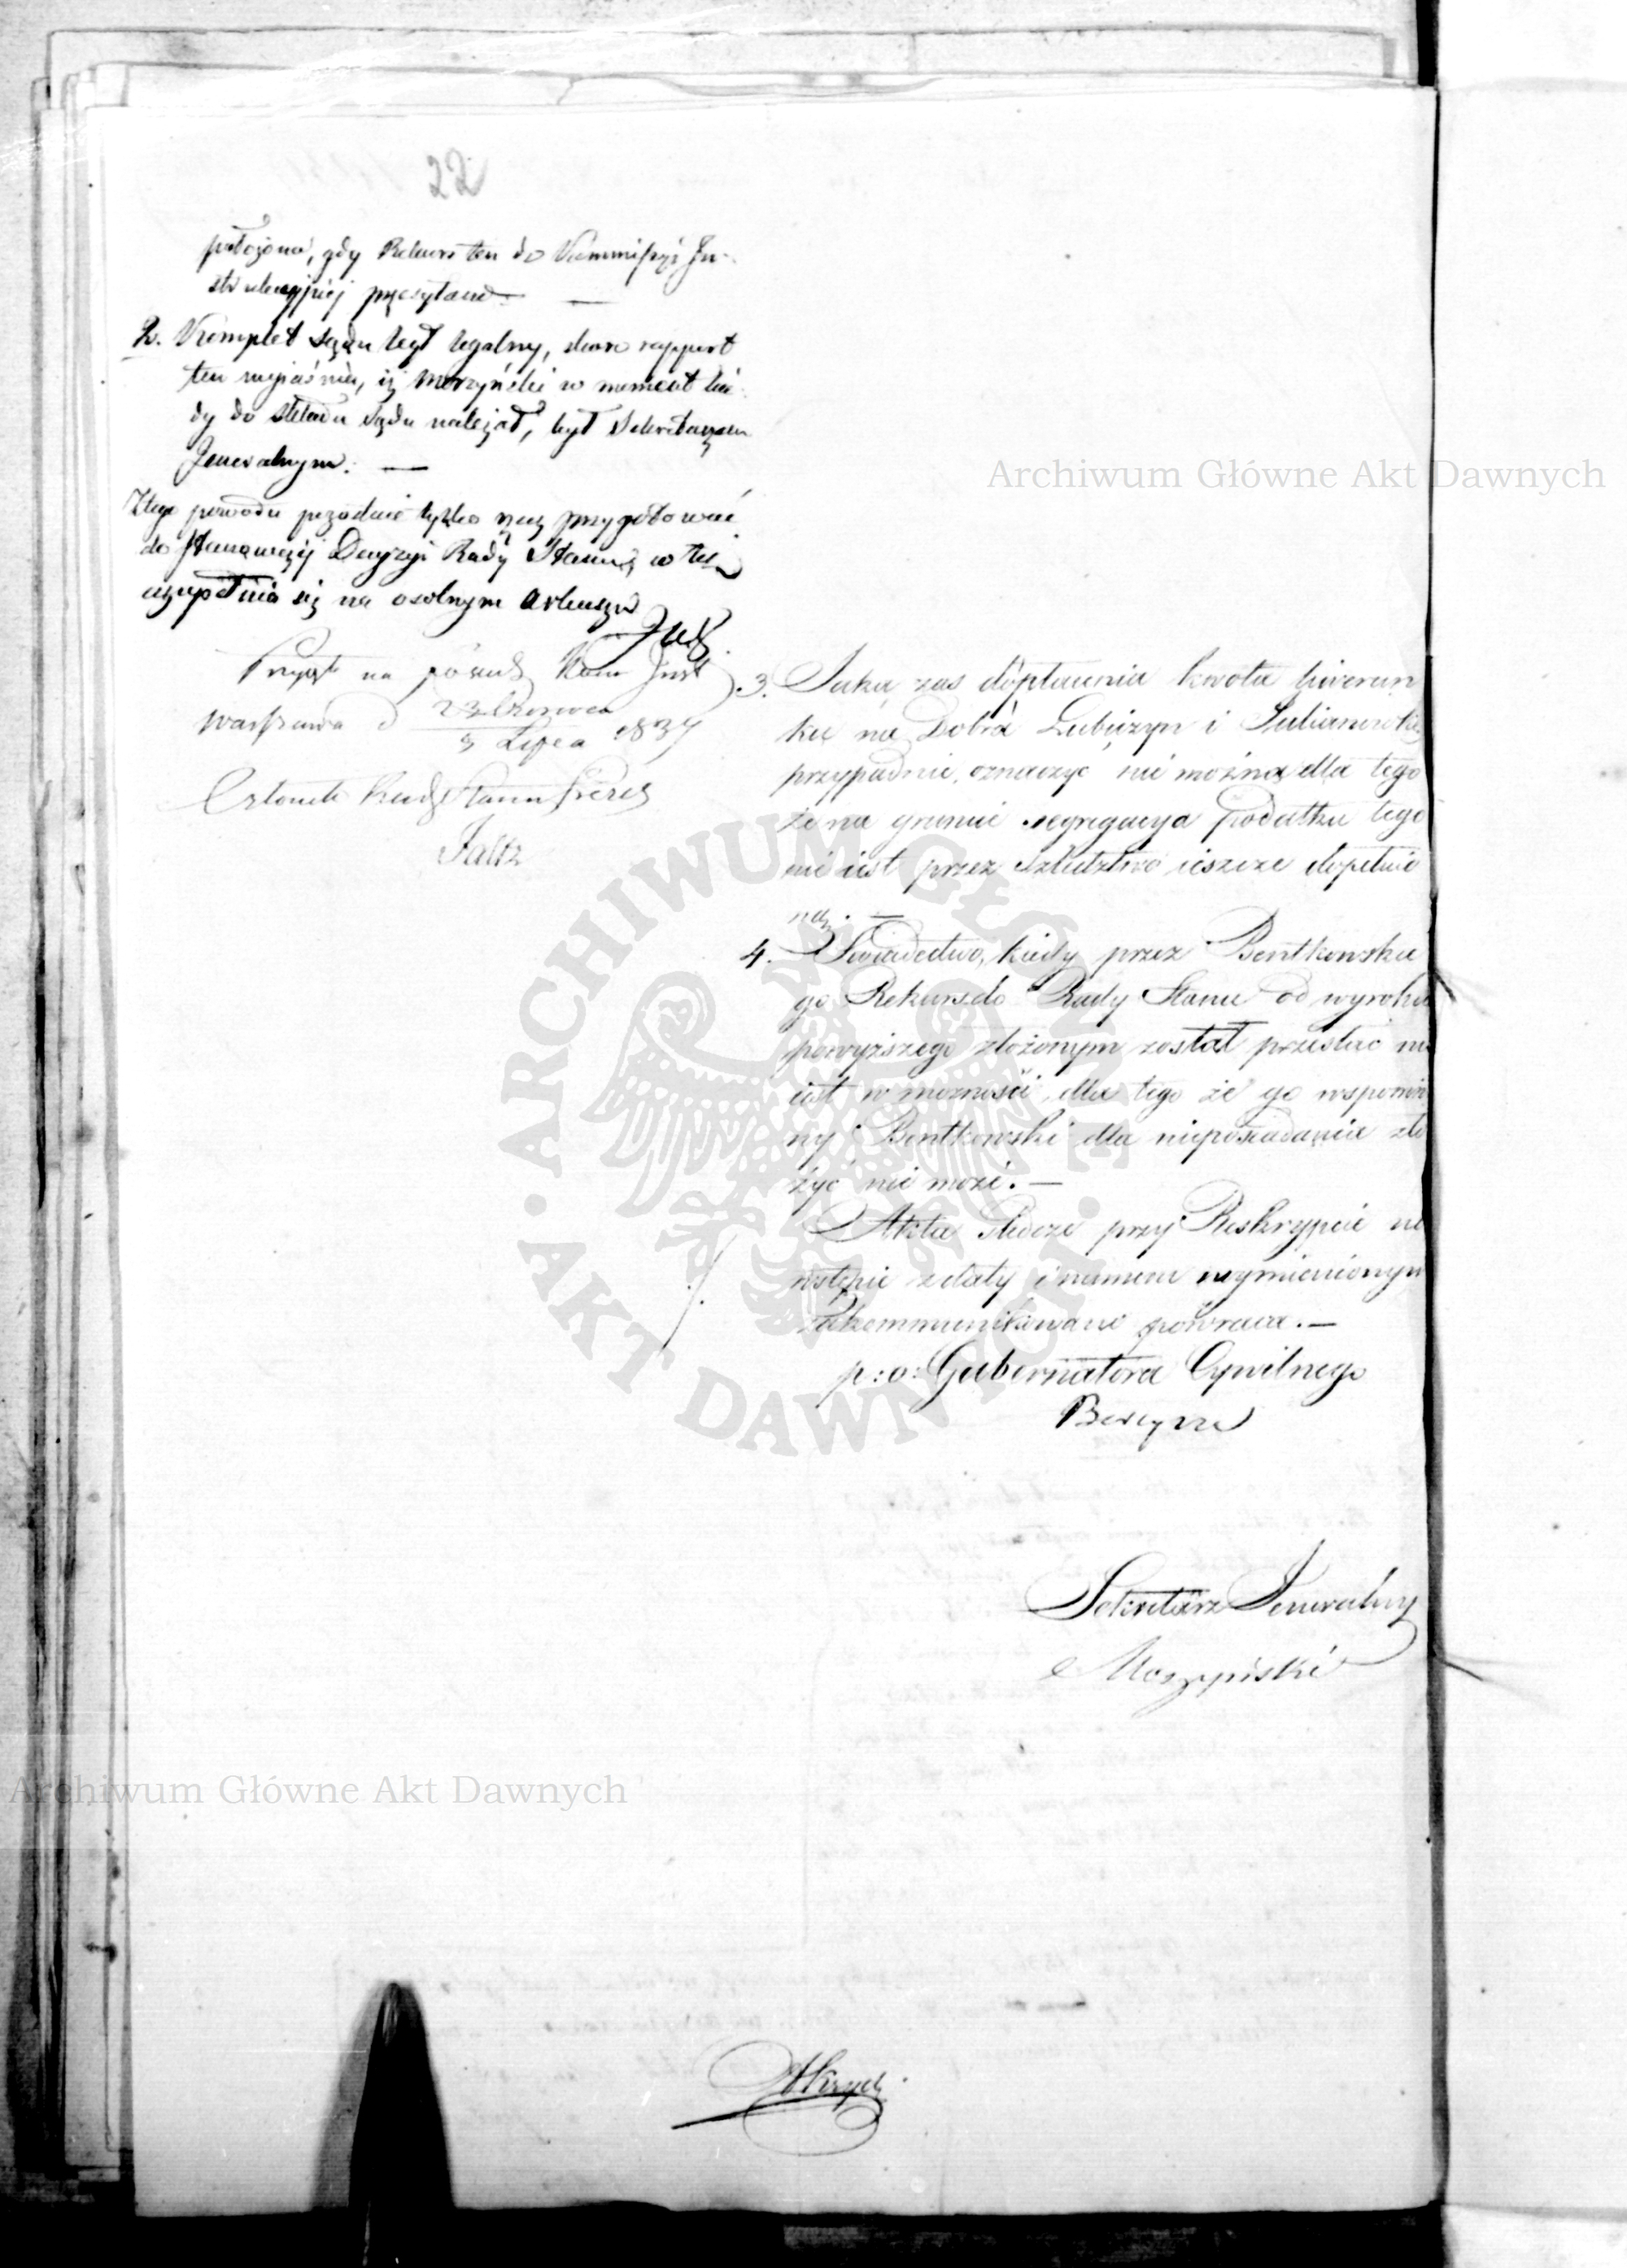 22
położona, gdy Rekurs ten do Kommissyi In-
strukcyjnej przesyłano —
2. Komplet sądu był legalny, skoro rapport
ten wyjaśnia, iż Moszyński w moment kie-
dy do składu sądu należał, był Sekretarzem
Jeneralnym. —
Z tego powodu pozostaie tylko rzecz przygotować
do stanowczéj Decyzyi Rady Stanu, w
uzupełnia się na osobnym Arkuszu
na Kom Inst
Warszawa d 23 Czerwca
5 Lipca 1837
Członek Rady Stanu
Faltz
3. Jaka zas dopłacenia kwota liwerun
ku na Dobra Lubiczyn i Julianowo
przypadnie, oznaczyć nie można dla tego
że na gruncie segregacya podatku tego
nie iest przez ieszcze dopełnio
na. —
4. Swiadectwo, kiedy przez Bentkowskie
go Rekurs do Rady Stanu od wyroku
powyższego złożonym został przesłać nie
iest w możności, dla tego że go wspomnio
ny Bentkowski dla nieposiadania zło
żyć nie może. —
Akta śledcze przy Reskrypcie na
wstępie z daty i numeru wymienionym
zakommunikowane powraca. —
p: o: Gubernatora Cywilnego
Sekretarz Jeneralny
Moszyński
Archiwum Główne Akt Dawnych
Archiwum Główne Akt Dawnych
ARCHIWUM GŁÓWNE
AKT DAWNYCH